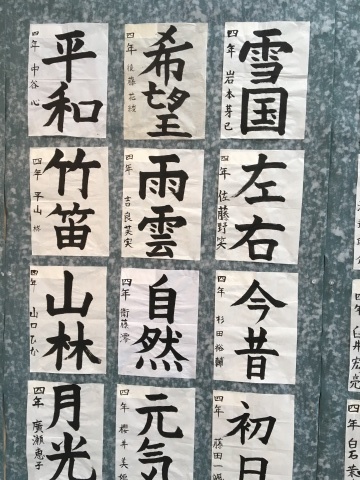 雪国
四年 岩本芽已
希望
四年 後藤
平和
四年 中谷 心
左右
四年 佐藤
雨雲
四年 吉良芙実
竹笛
四年 平山
今昔
四年 杉田裕輔
自然
四年 衛藤澪
山林
四年 山口ひな
臼井宏亮
初日
四年 藤田一
元気
四年 櫻井美
月光
四年 廣瀬恵子
四年 白石